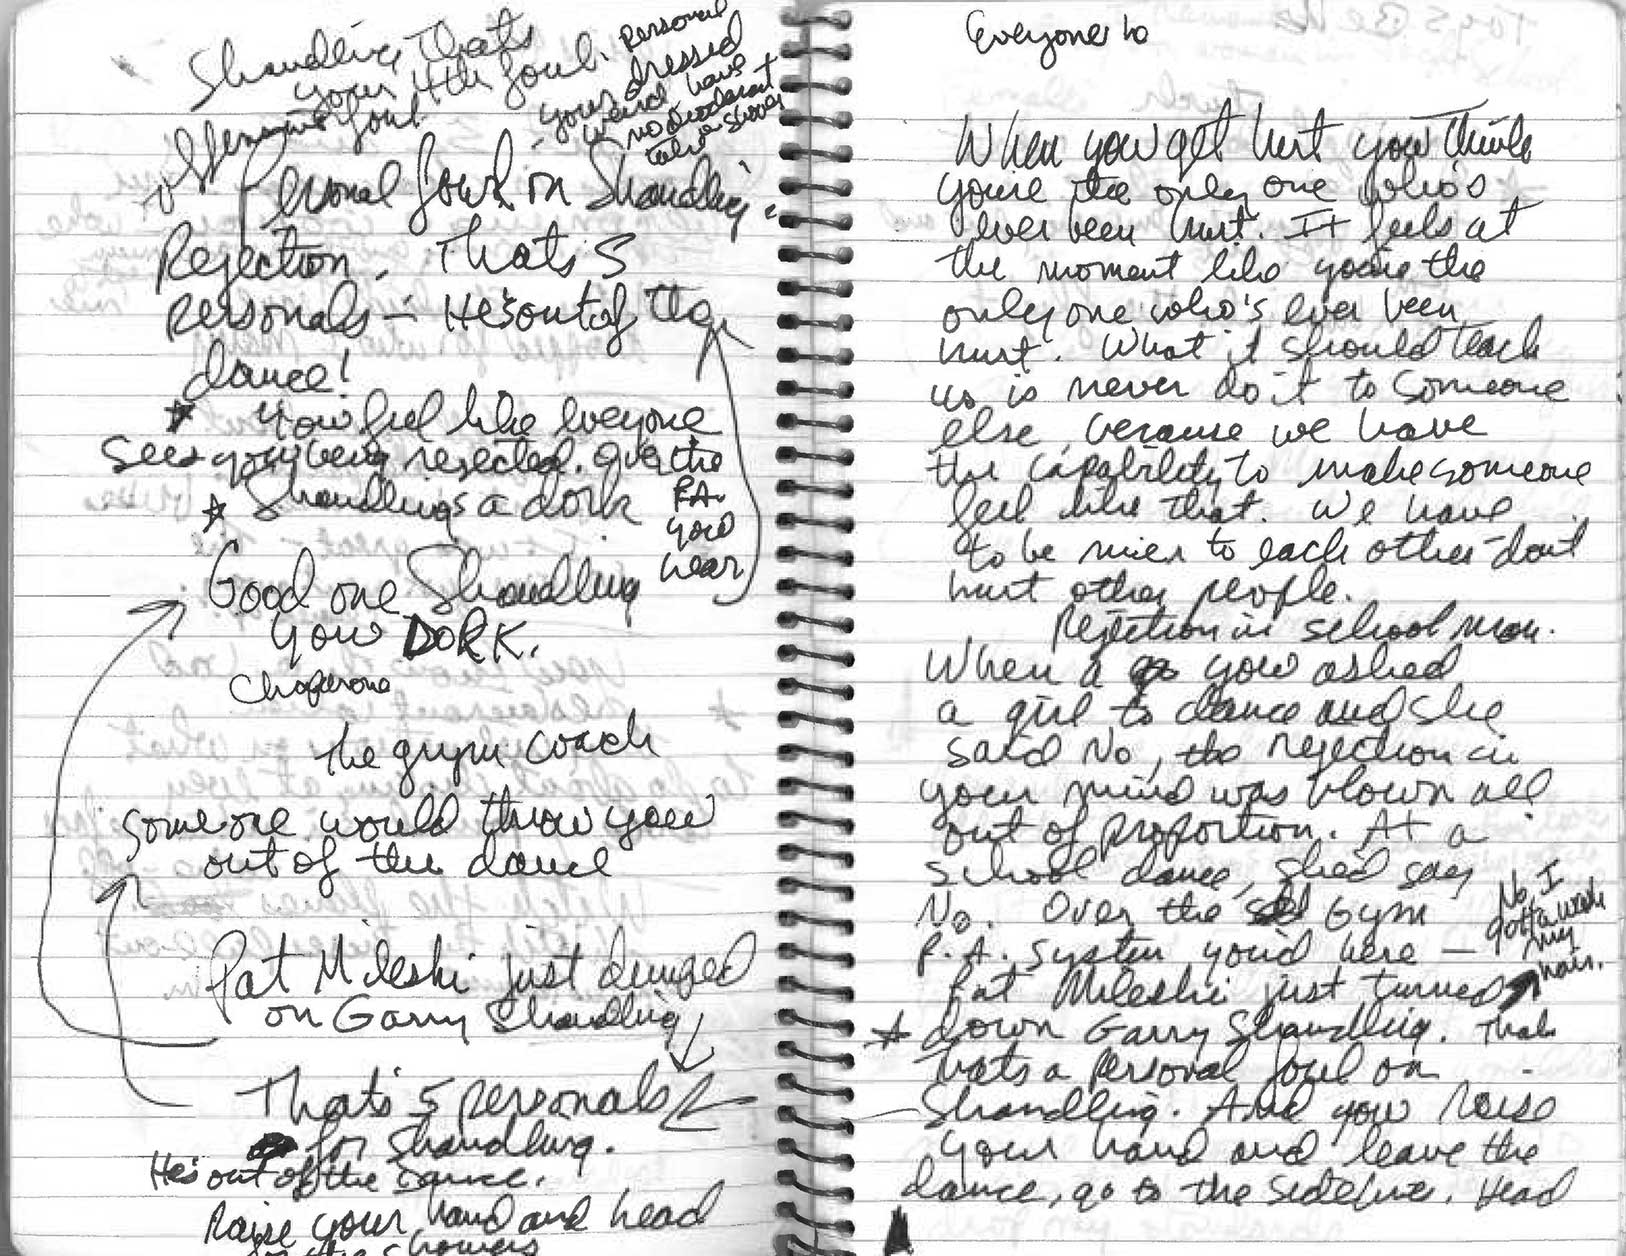 Shandling That's
your 4th foul.
offensive foul
Personal
your dressed
weird, have
no deodorant
take a shower
Personal foul on Shandling -
Rejection. That's 5
personals - He's out of the
dance!
★ You feel like everyone
sees you being rejected. Over the
P.A.
you
hear
★ Shandling's a dork
Good one Shandling
you DORK.
Chaperone
the gym coach
someone would throw you
out of the dance
Pat Mileski just dunged
on Garry Shandling
That's 5 personals
for Shandling.
He's out of the dance.
Raise your hand and head
for the showers
Everyone to
When you get hurt you think
you're the only one who's
ever been hurt. It feels at
the moment like you're the
only one who's ever been
hurt. What it should teach
us is never do it to someone
else, because we have
the capability to make someone
feel like that. We have
to be nicer to each other - don't
hurt other people.
Rejection in school mon.
When a you asked
a girl to dance and she
said No, the rejection in
your mind was blown all
out of proportion. At a
school dance, she'd say
No. Over the Gym
P.A. System you'd here -
No, I
gotta wash
my
hair.
Pat Mileski just turned
★ down Garry Shandling. That
thats a personal foul on
Shandling. And you raise
your hand and leave the
dance, go to the sideline. Head